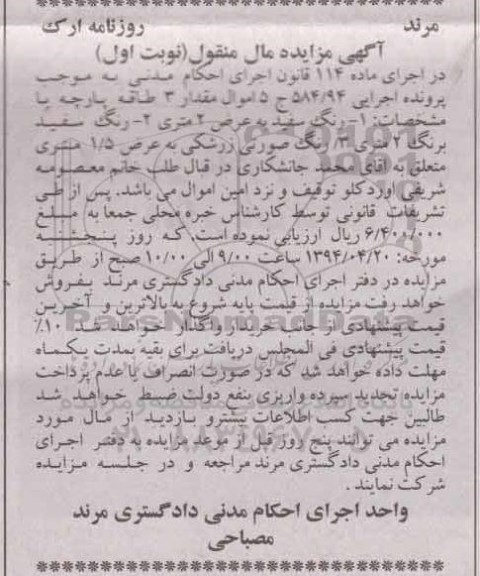 مرند روزنامه ارک
آگهی مزایده مال منقول(نوبت اول)
در اجرای ماده ۱۱۴ قانون اجرای احکام مدنی به موجب
پرونده اجرایی ۵۸۴/۹۴ ج ۵ اموال مقدار ۳ طاقه پارچه با
مشخصات: ۱- رنگ سفید به عرض ۲ متری ۲- رنگ سفید
برنگ ۲ متری ۳/ رنگ صورتی زرشکی به عرض ۱/۵ متری
متعلق به آقای محمد جانشکاری در قبال طلب خانم معصومه
شریفی اوردکلو توقیف و نزد امین اموال می باشد. پس از طی
تشریفات قانونی توسط کارشناس خبره محلی جمعا به مبلغ
۶/۴۰۰/۰۰۰ ریال ارزیابی نموده است. که روز پنجشنبه
مورخه: ۱۳۹۴/۰۴/۲۰ ساعت ۹/۰۰ الی ۱۰/۰۰ صبح از طریق
مزایده در دفتر اجرای احکام مدنی دادگستری مرند بفروش
خواهد رفت مزایده از قیمت پایه شروع به بالاترین و آخرین
قیمت پیشنهادی از جانب خریدار واگذار خواهد شد ۱۰٪
قیمت پیشنهادی فی المجلس دریافت برای بقیه بمدت یکماه
مهلت داده خواهد شد که در صورت انصراف یا عدم پرداخت
مزایده تجدید سپرده واریزی بنفع دولت ضبط خواهد شد
طالبین جهت کسب اطلاعات بیشترو بازدید از مال مورد
مزایده می توانند پنج روز قبل از موعد مزایده به دفتر اجرای
احکام مدنی دادگستری مرند مراجعه و در جلسه مزایده
شرکت نمایند .
واحد اجرای احکام مدنی دادگستری مرند
مصباحی
ParsNamadData